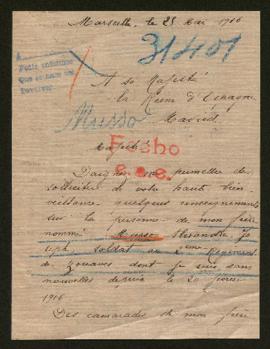 Marseille, le 25 Mai 1916
31401
A sa Majesté
la Reine d'Espagne
Madrid
Musso
Fecho
Majesté
Daignez me permettre de
solliciter de votre haute bien
veillance quelques renseignements
sur la personne de mon frère
nommé Musso Alexandre Jo
seph, soldat au 2ème Régiment
de Zouaves dont je suis sans
nouvelles depuis le 20 février
1916
Des camarades de mon frère